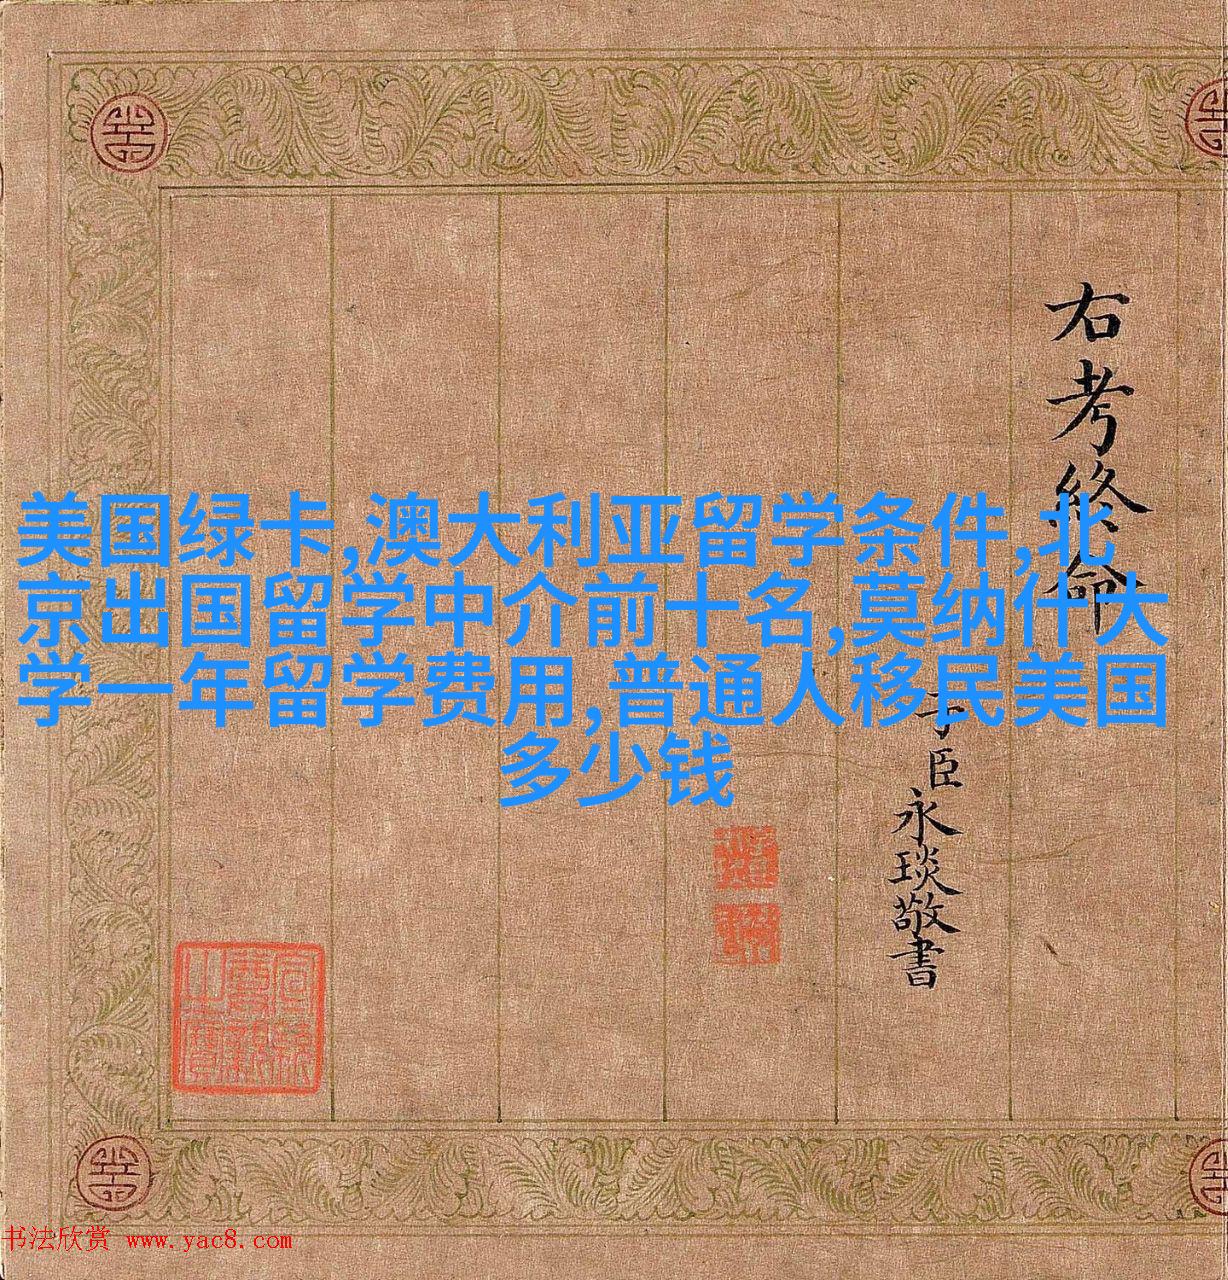 右考終命
子臣永琰敬書
美国绿卡,澳大利亚留学条件,北
京出国留学中介前十名,莫纳什大
学一年留学费用,普通人移民美国
多少钱
书法欣赏 www.yac8.com